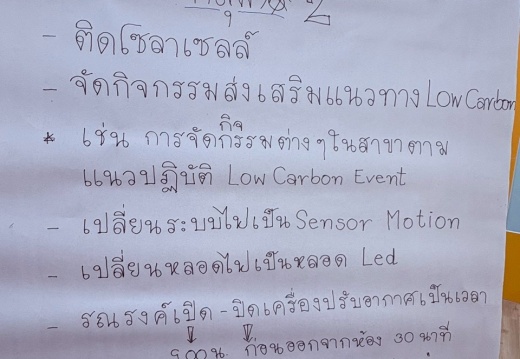 2
- ติดโซลาเซลล์
- จัดกิจกรรมส่งเสริมแนวทาง Low Carbon
* เช่น การจัดกิจกรรมต่างๆในสาขาตาม
แนวปฏิบัติ Low Carbon Event
- เปลี่ยนระบบไฟเป็น Sensor Motion
- เปลี่ยนหลอดไฟเป็นหลอด Led
- รณรงค์เปิด - ปิดเครื่องปรับอากาศเป็นเวลา
ก่อนออกจากห้อง 30 นาที